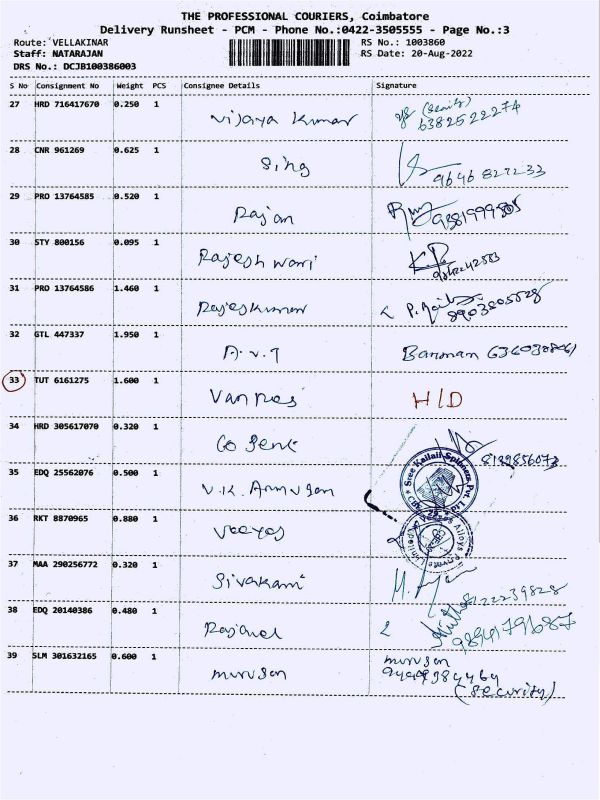 THE PROFESSIONAL COURIERS, Coimbatore
Delivery Runsheet - PCM - Phone No.:0422-3505555 - Page No.:3
Route: VELLAKINAR RS No.: 1003860
Staff: NATARAJAN RS Date: 20-Aug-2022
DRS No.: DCJB100386003
S No Consignment No Weight PCS Consignee Details Signature
27 HRD 716417670 0.250 1 Vijaya Kumar 6382522274
28 CNR 961269 0.625 1 Sing 9646 827233
29 PRO 13764585 0.520 1 Rajan
30 STY 800156 0.095 1
31 PRO 13764586 1.460 1 Rajeskumar 8903805528
32 GTL 447337 1.950 1 A.V.T Barman
33 TUT 6161275 1.600 1 H/D
34 HRD 305617070 0.320 1 8189856073
35 EDQ 25562076 0.500 1 V.K.
36 RKT 8870965 0.880 1
37 MAA 290256772 0.320 1 Sivakami
38 EDQ 20140386 0.480 1 9894179687
39 SLM 301632165 0.600 1 murugan murugan
(Security)